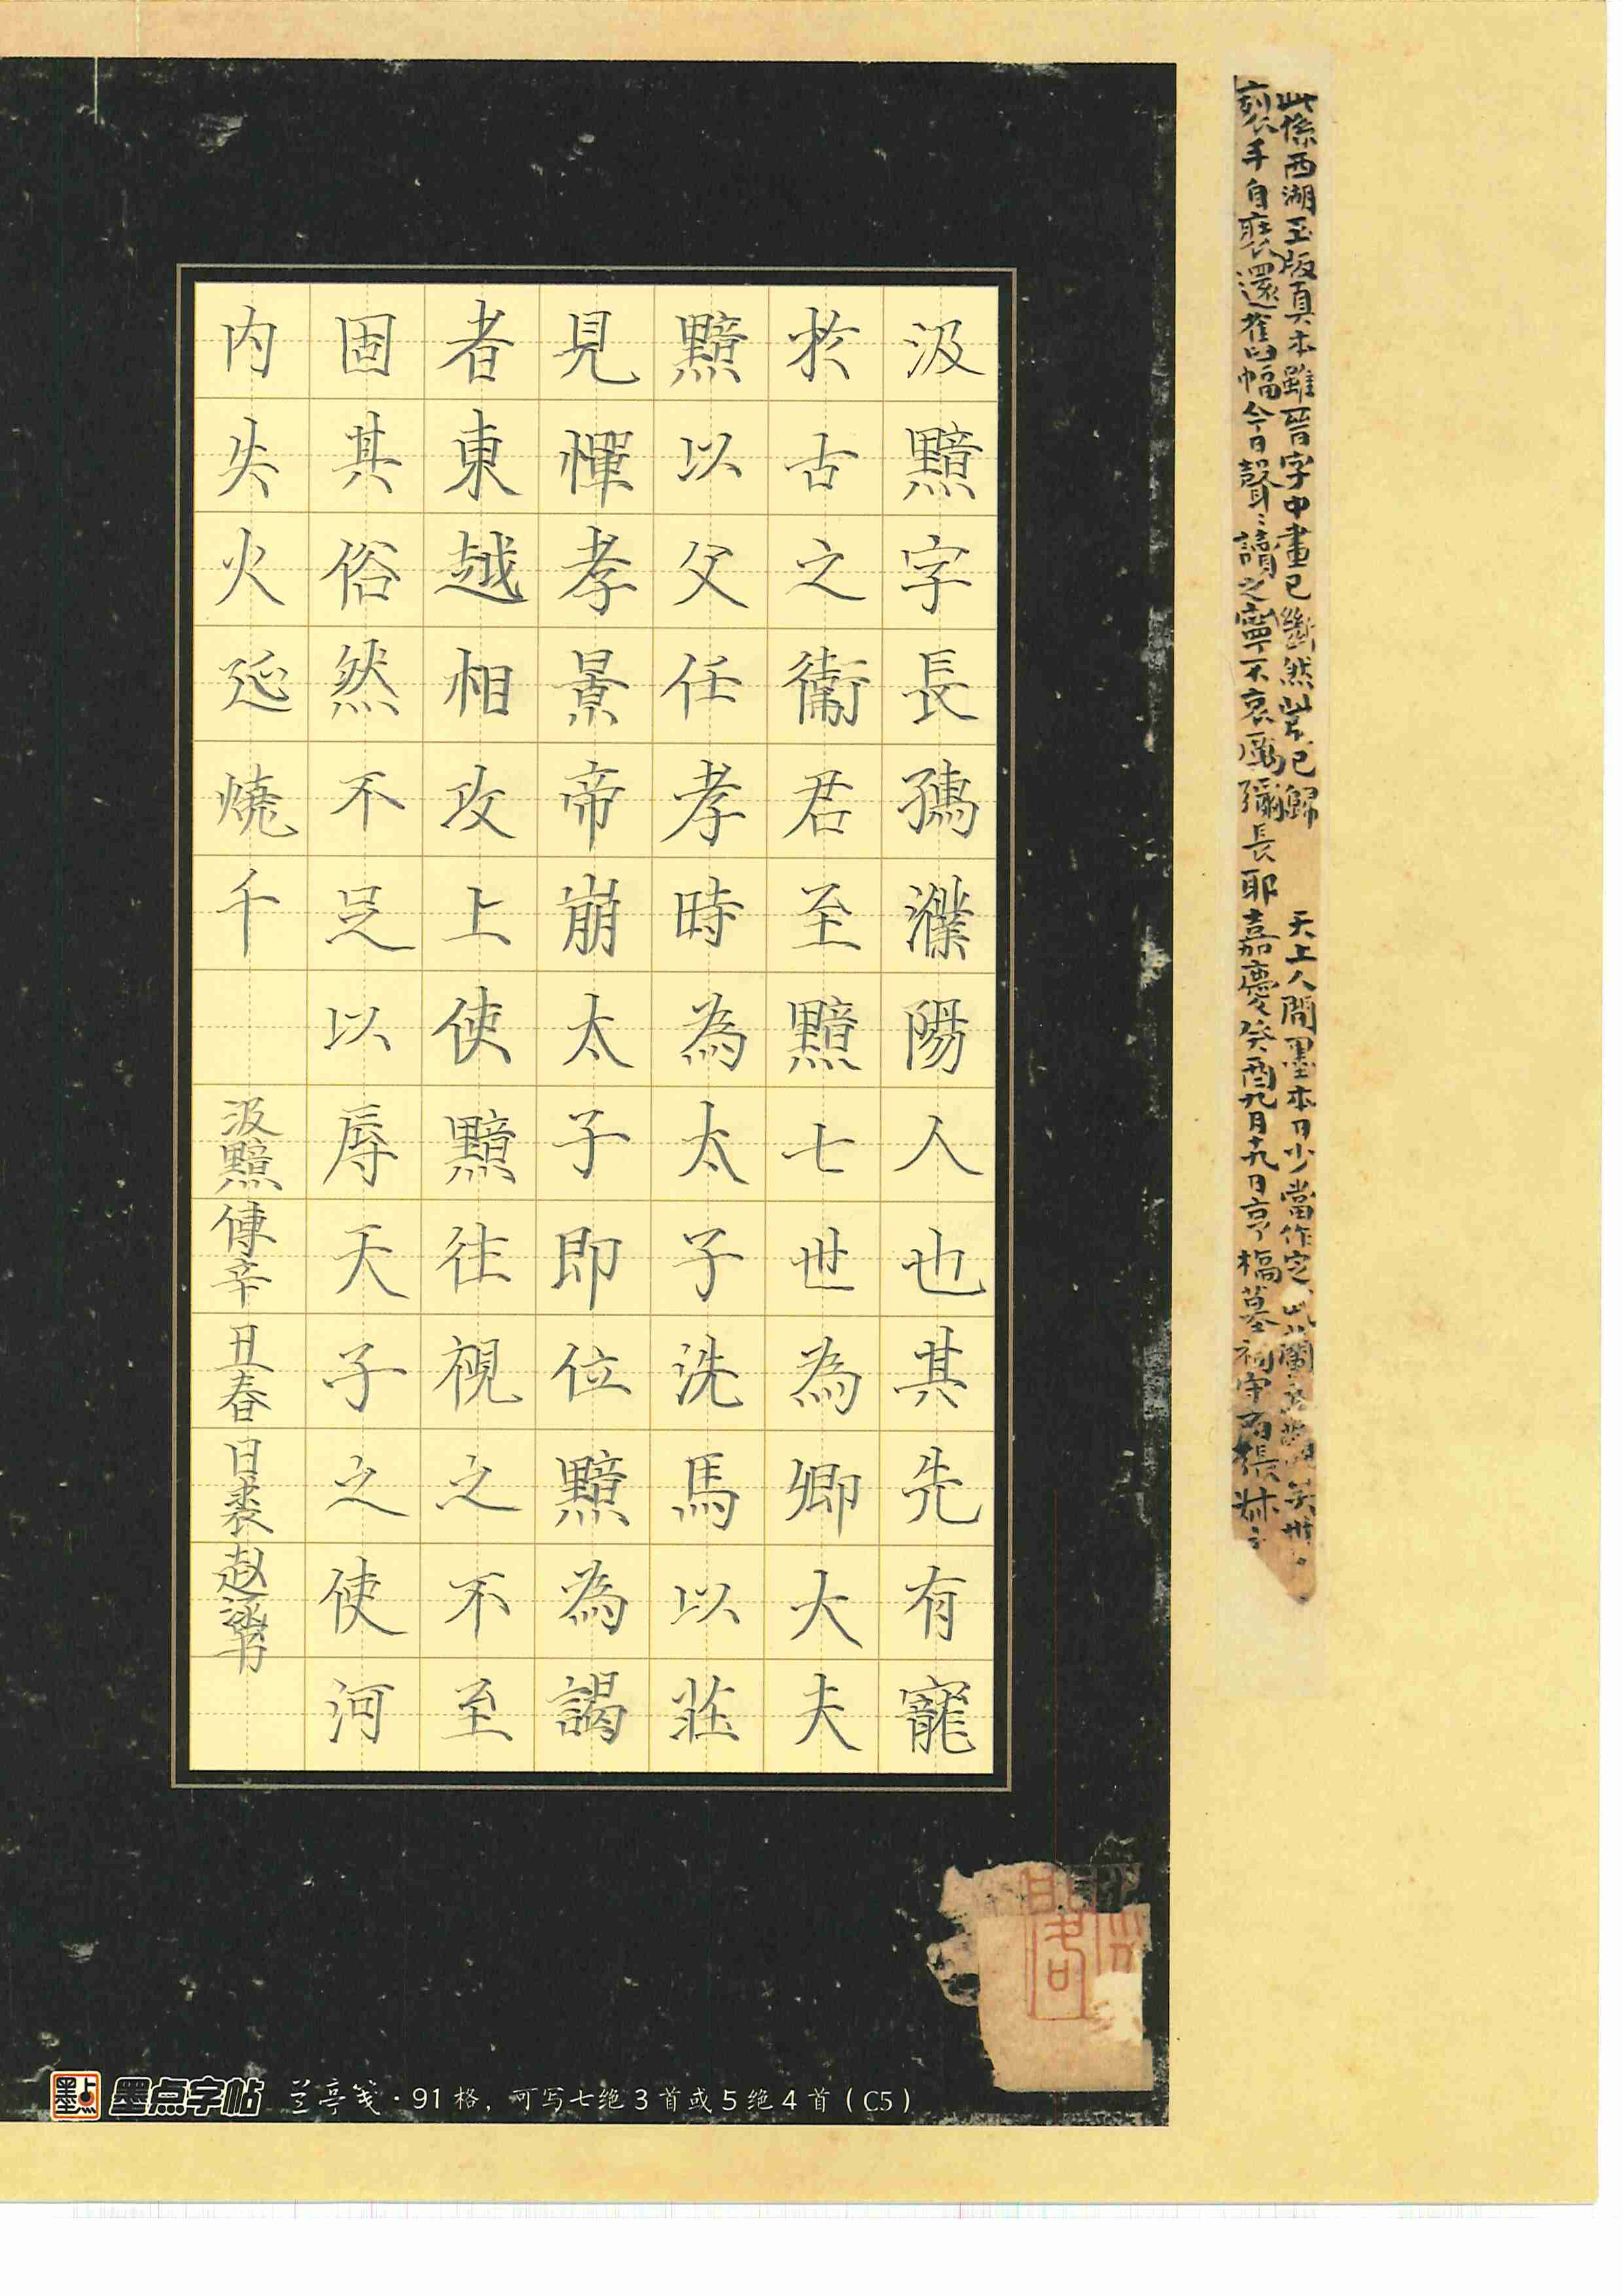 此係西湖玉版真本雖晉字中畫已斷然 已歸 天上人間墨本日少當作定 蘭
手自裝還舊幅今日聲讀之寧不哀厲彌長耶嘉慶癸酉九月十九日
汲黯字長孺濮陽人也其先有寵
於古之衛君至黯七世為卿大夫
黯以父任孝時為太子洗馬以莊
見憚孝景帝崩太子即位黯為謁
者東越相攻上使黯往視之不至
固其俗然不足以辱天子之使河
内失火延燒千
汲黯傳辛丑春日裘赵书
墨点
墨点字帖 兰亭笺·91格，可写七绝3首或5绝4首（C5）